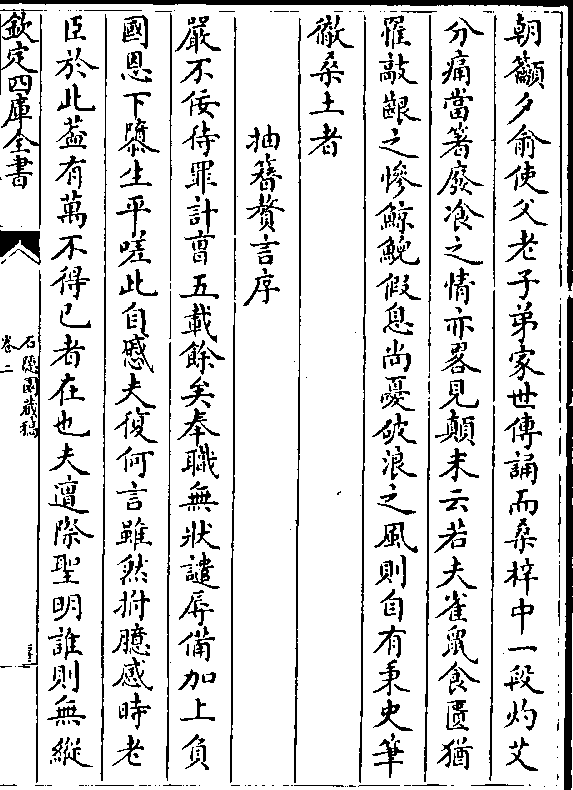 朝籲夕俞使父老子弟家世傳誦而桑梓中一段灼艾
分痛當箸廢飡之情亦畧見顛末云若夫雀鼠食匱猶
罹敲齦之慘鯨鯢假息尚憂破浪之風則自有秉史筆
徹桑土者
抽簪贅言序
嚴不佞待罪計曺五載餘矣奉職無狀譴辱備加上負
國恩下隳生平嗟此自慼夫復何言雖然拊臆感時老
臣於此葢有萬不得已者在也夫遭際聖明誰則無縱
欽定四庫全書
石隱園藏稿
卷二